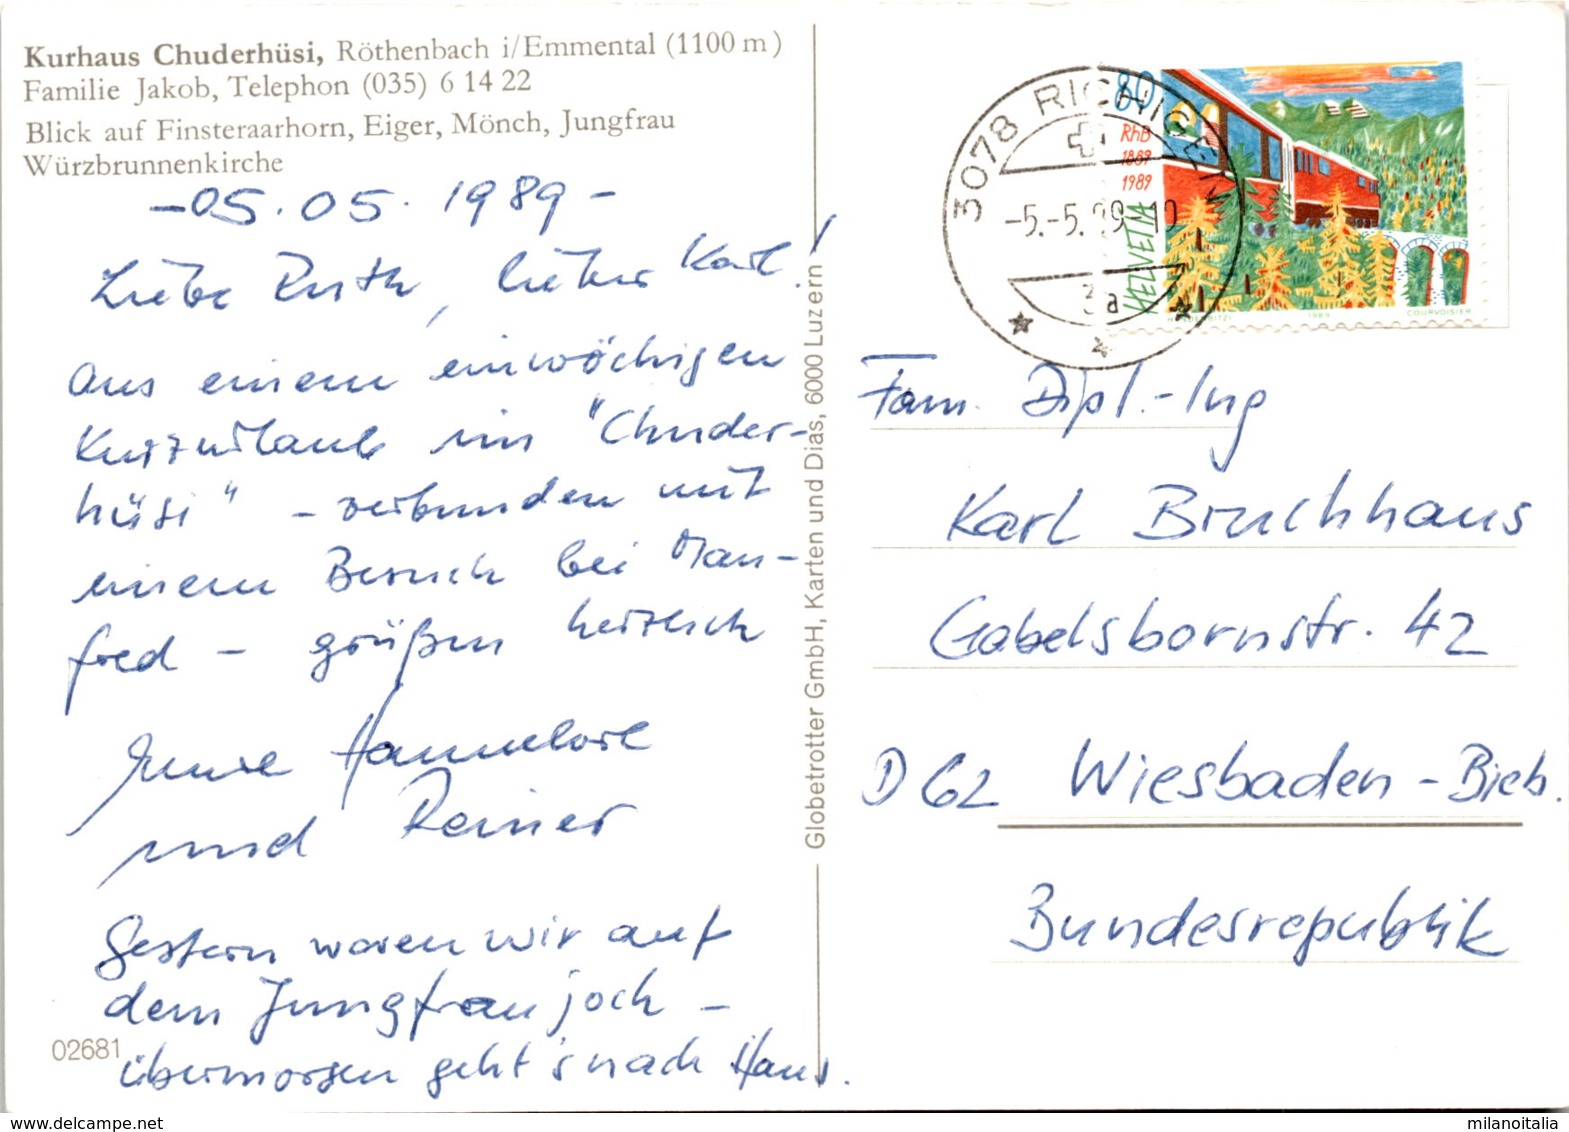 Kurhaus Chuderhüsi, Röthenbach i/Emmental (1100 m)
Familie Jakob, Telephon (035) 6 14 22
Blick auf Finsteraarhorn, Eiger, Mönch, Jungfrau
Würzbrunnenkirche
-05.05.1989-
Liebe Ruth, lieber Karl!
Aus einem einwöchigen
Kurzurlaub im "Chuder-
hüsi" - verbunden mit
einem Besuch bei Man-
fred - grüßen herzlich
Eure Hannelore
und Reiner
Gestern waren wir auf
dem Jungfraujoch -
übermorgen geht's nach Haus.
02681
Globetrotter GmbH, Karten und Dias, 6000 Luzern
3078 RICHIGEN
-5.-5.89-10
3a
80
RhB
1889
1989
HELVETIA
1989
COURVOISIER
Fam. Dipl.-Ing
Karl Bruchhaus
Gabelsbornstr. 42
D 62 Wiesbaden-Bieb.
Bundesrepublik
milanoitalia